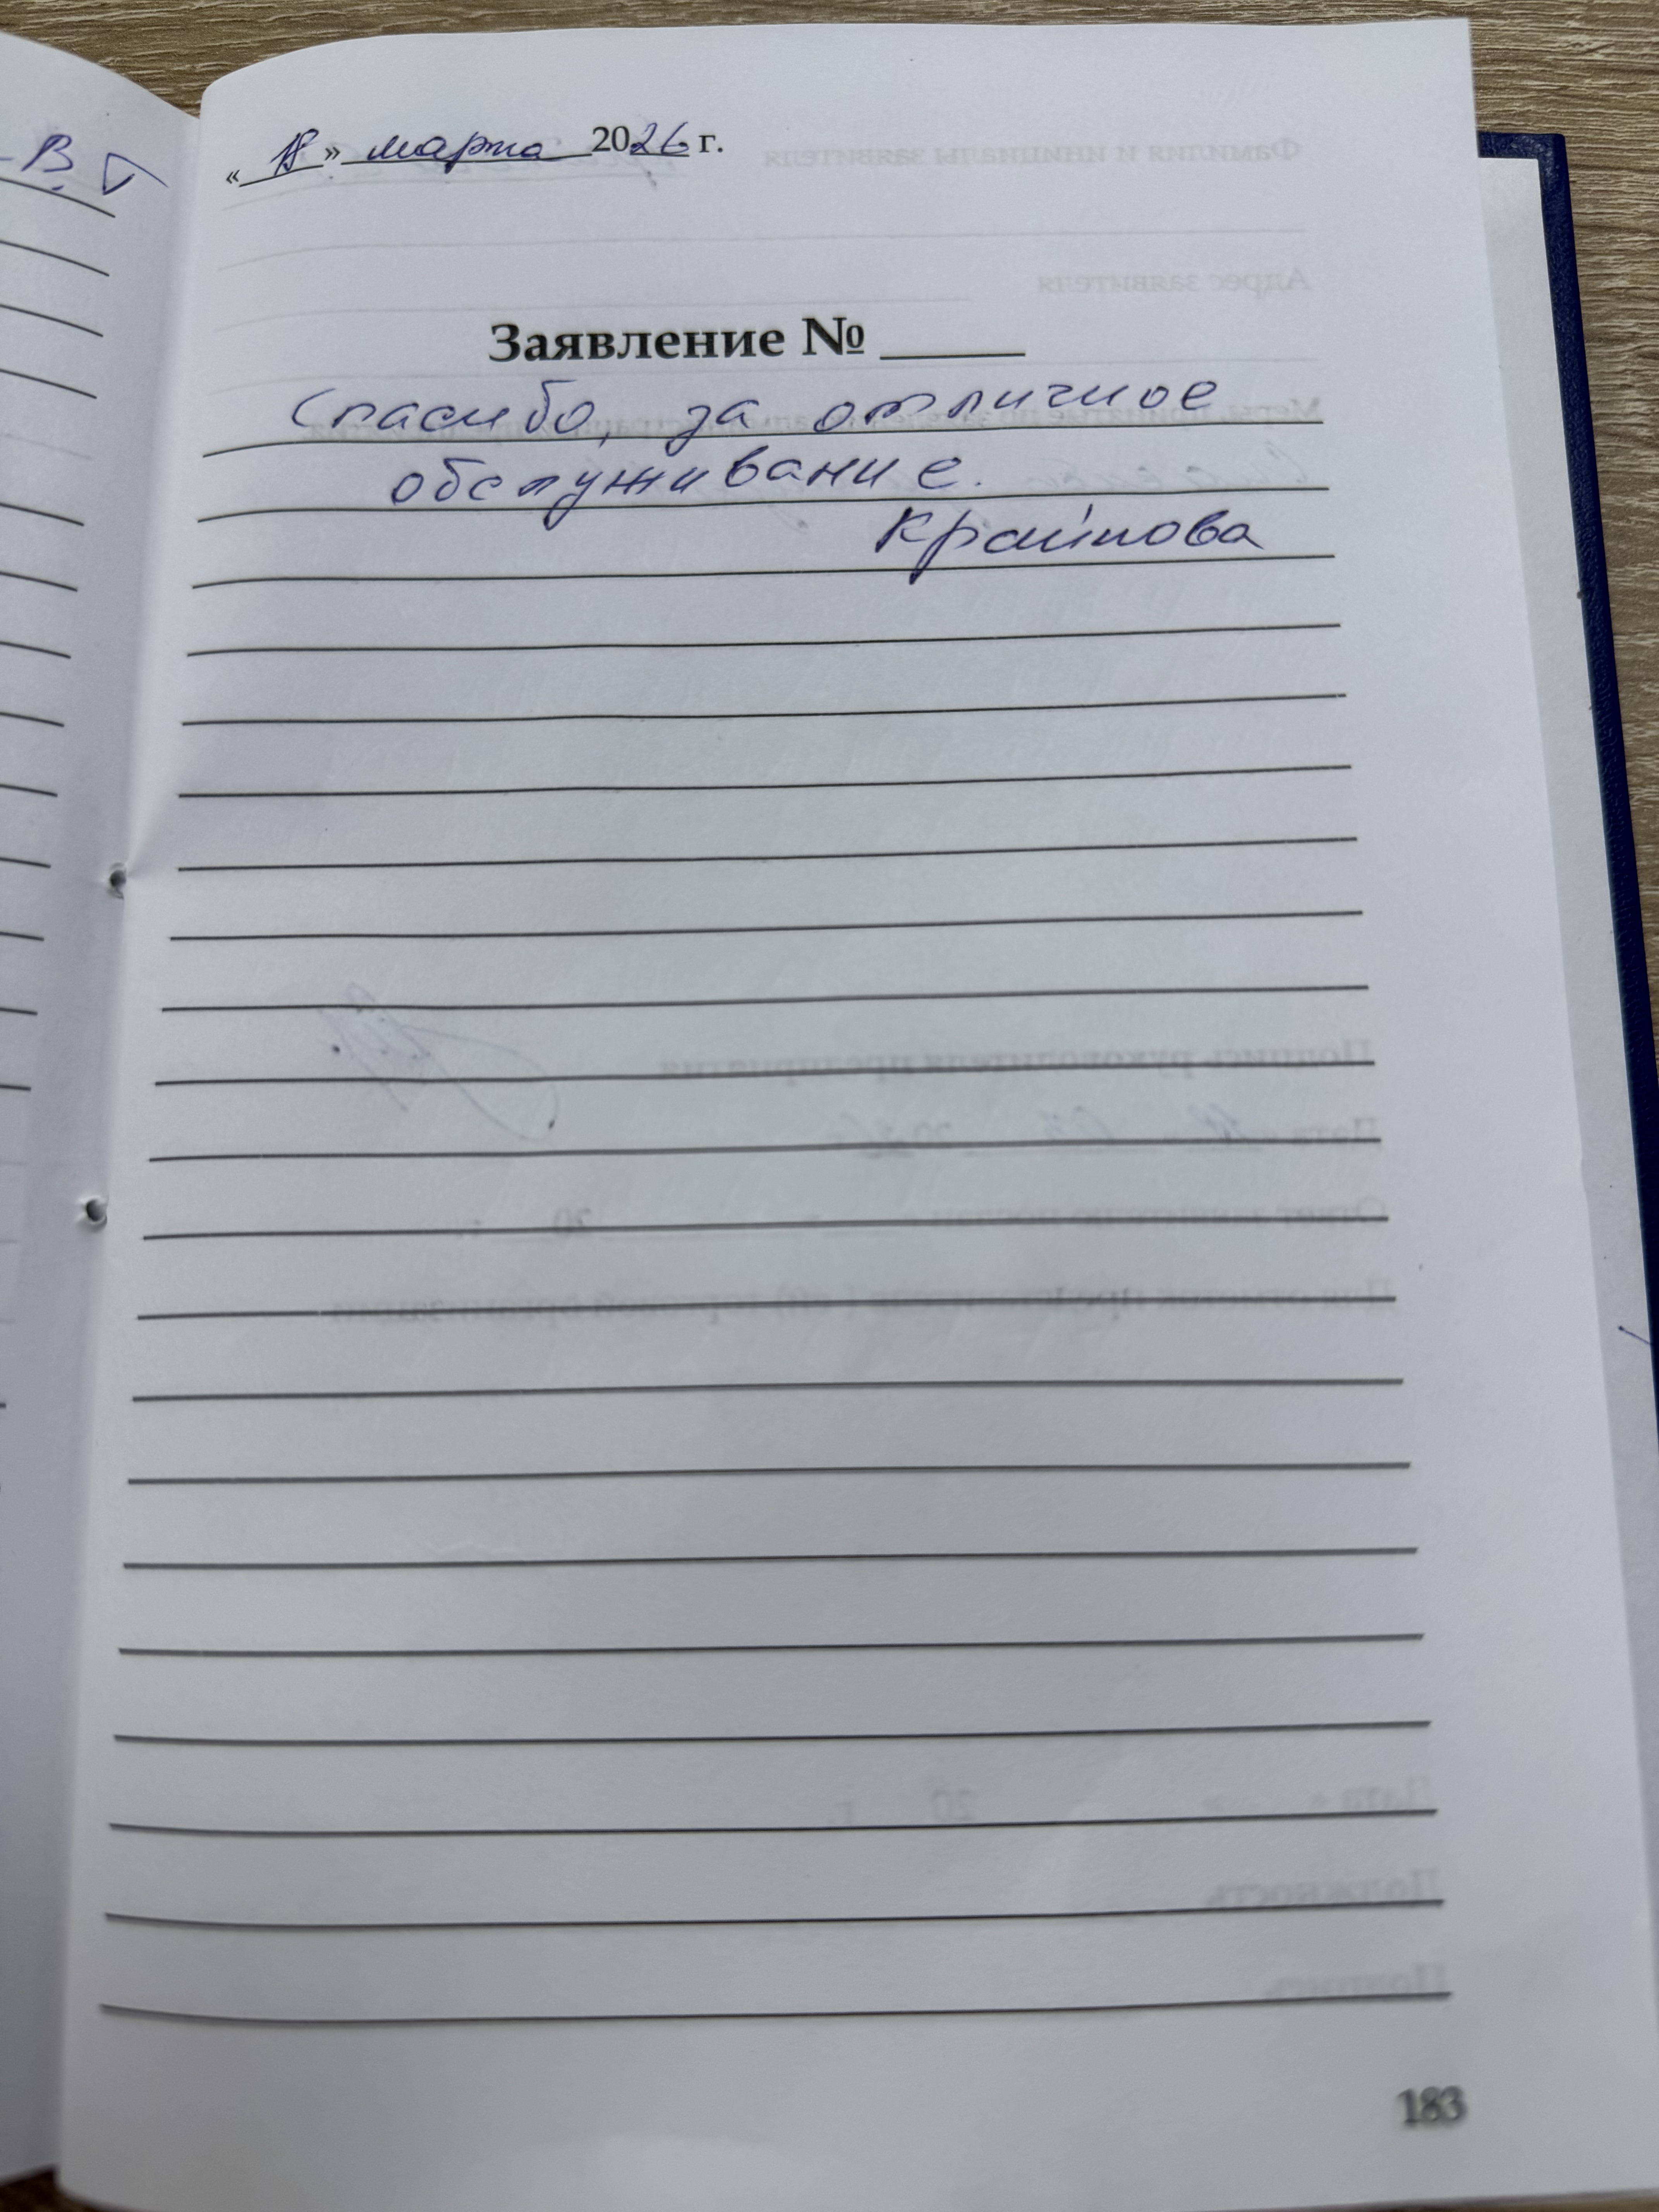 В.
«18» марта 2026 г.
Заявление № ____
Спасибо, за отличное
обслуживание.
183